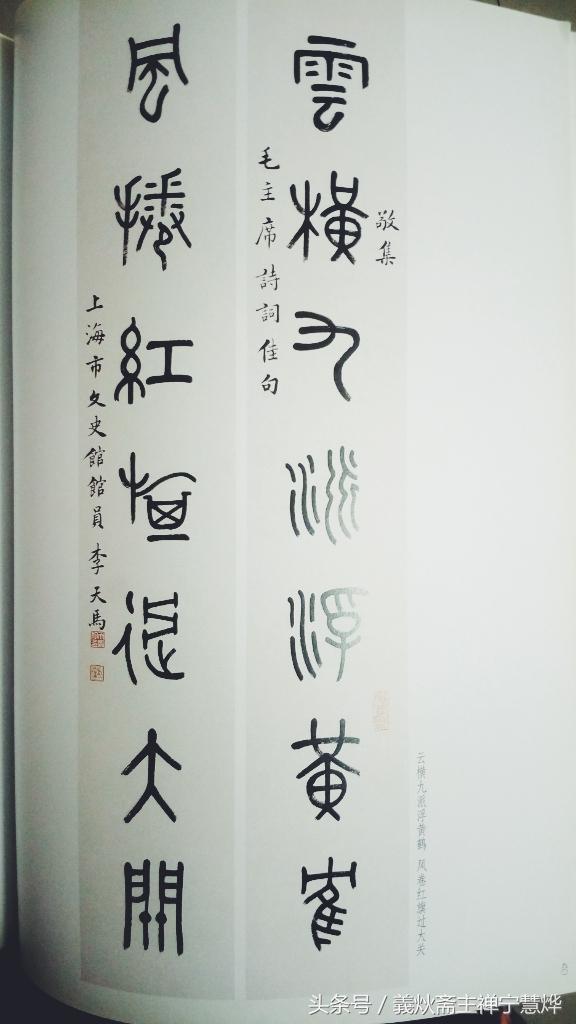 敬集
雲橫九派浮黃隺
毛主席詩詞佳句
風捲紅旗過大關
上海市文史館館員李天馬
云横九派浮黄鹤 风卷红旗过大关
头条号 / 義炏斋主禅宁慧烨